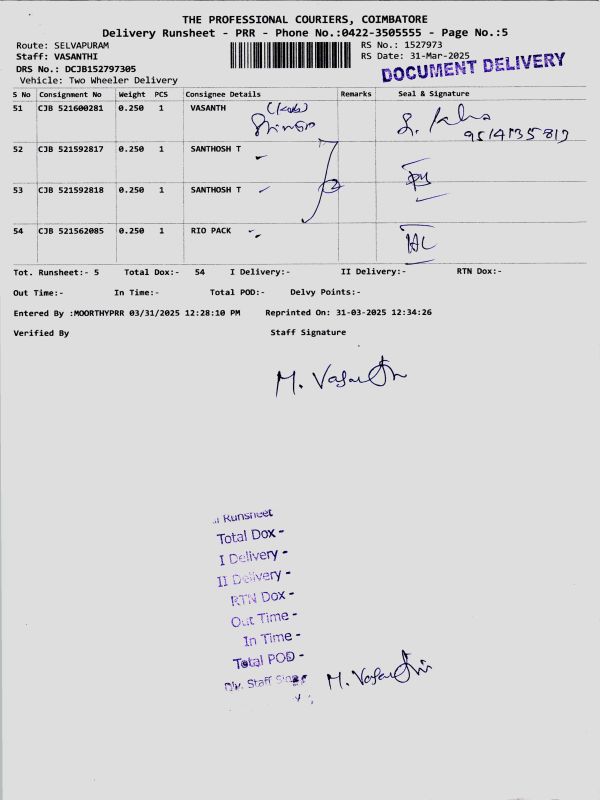 THE PROFESSIONAL COURIERS, COIMBATORE
Delivery Runsheet - PRR - Phone No.:0422-3505555 - Page No.:5
Route: SELVAPURAM RS No.: 1527973
Staff: VASANTHI RS Date: 31-Mar-2025
DRS No.: DCJB152797305 DOCUMENT DELIVERY
Vehicle: Two Wheeler Delivery
S No Consignment No Weight PCS Consignee Details Remarks Seal & Signature
51 CJB 521600281 0.250 1 VASANTH
9514135817
52 CJB 521592817 0.250 1 SANTHOSH T
53 CJB 521592818 0.250 1 SANTHOSH T
54 CJB 521562085 0.250 1 RIO PACK
Tot. Runsheet:- 5 Total Dox:- 54 I Delivery:- II Delivery:- RTN Dox:-
Out Time:- In Time:- Total POD:- Delvy Points:-
Entered By :MOORTHYPRR 03/31/2025 12:28:10 PM Reprinted On: 31-03-2025 12:34:26
Verified By Staff Signature
M. Vasanthi
Runsheet
Total Dox -
I Delivery -
II Delivery -
RTN Dox -
Out Time -
In Time -
Total POD -
Div. Staff M. Vasanthi